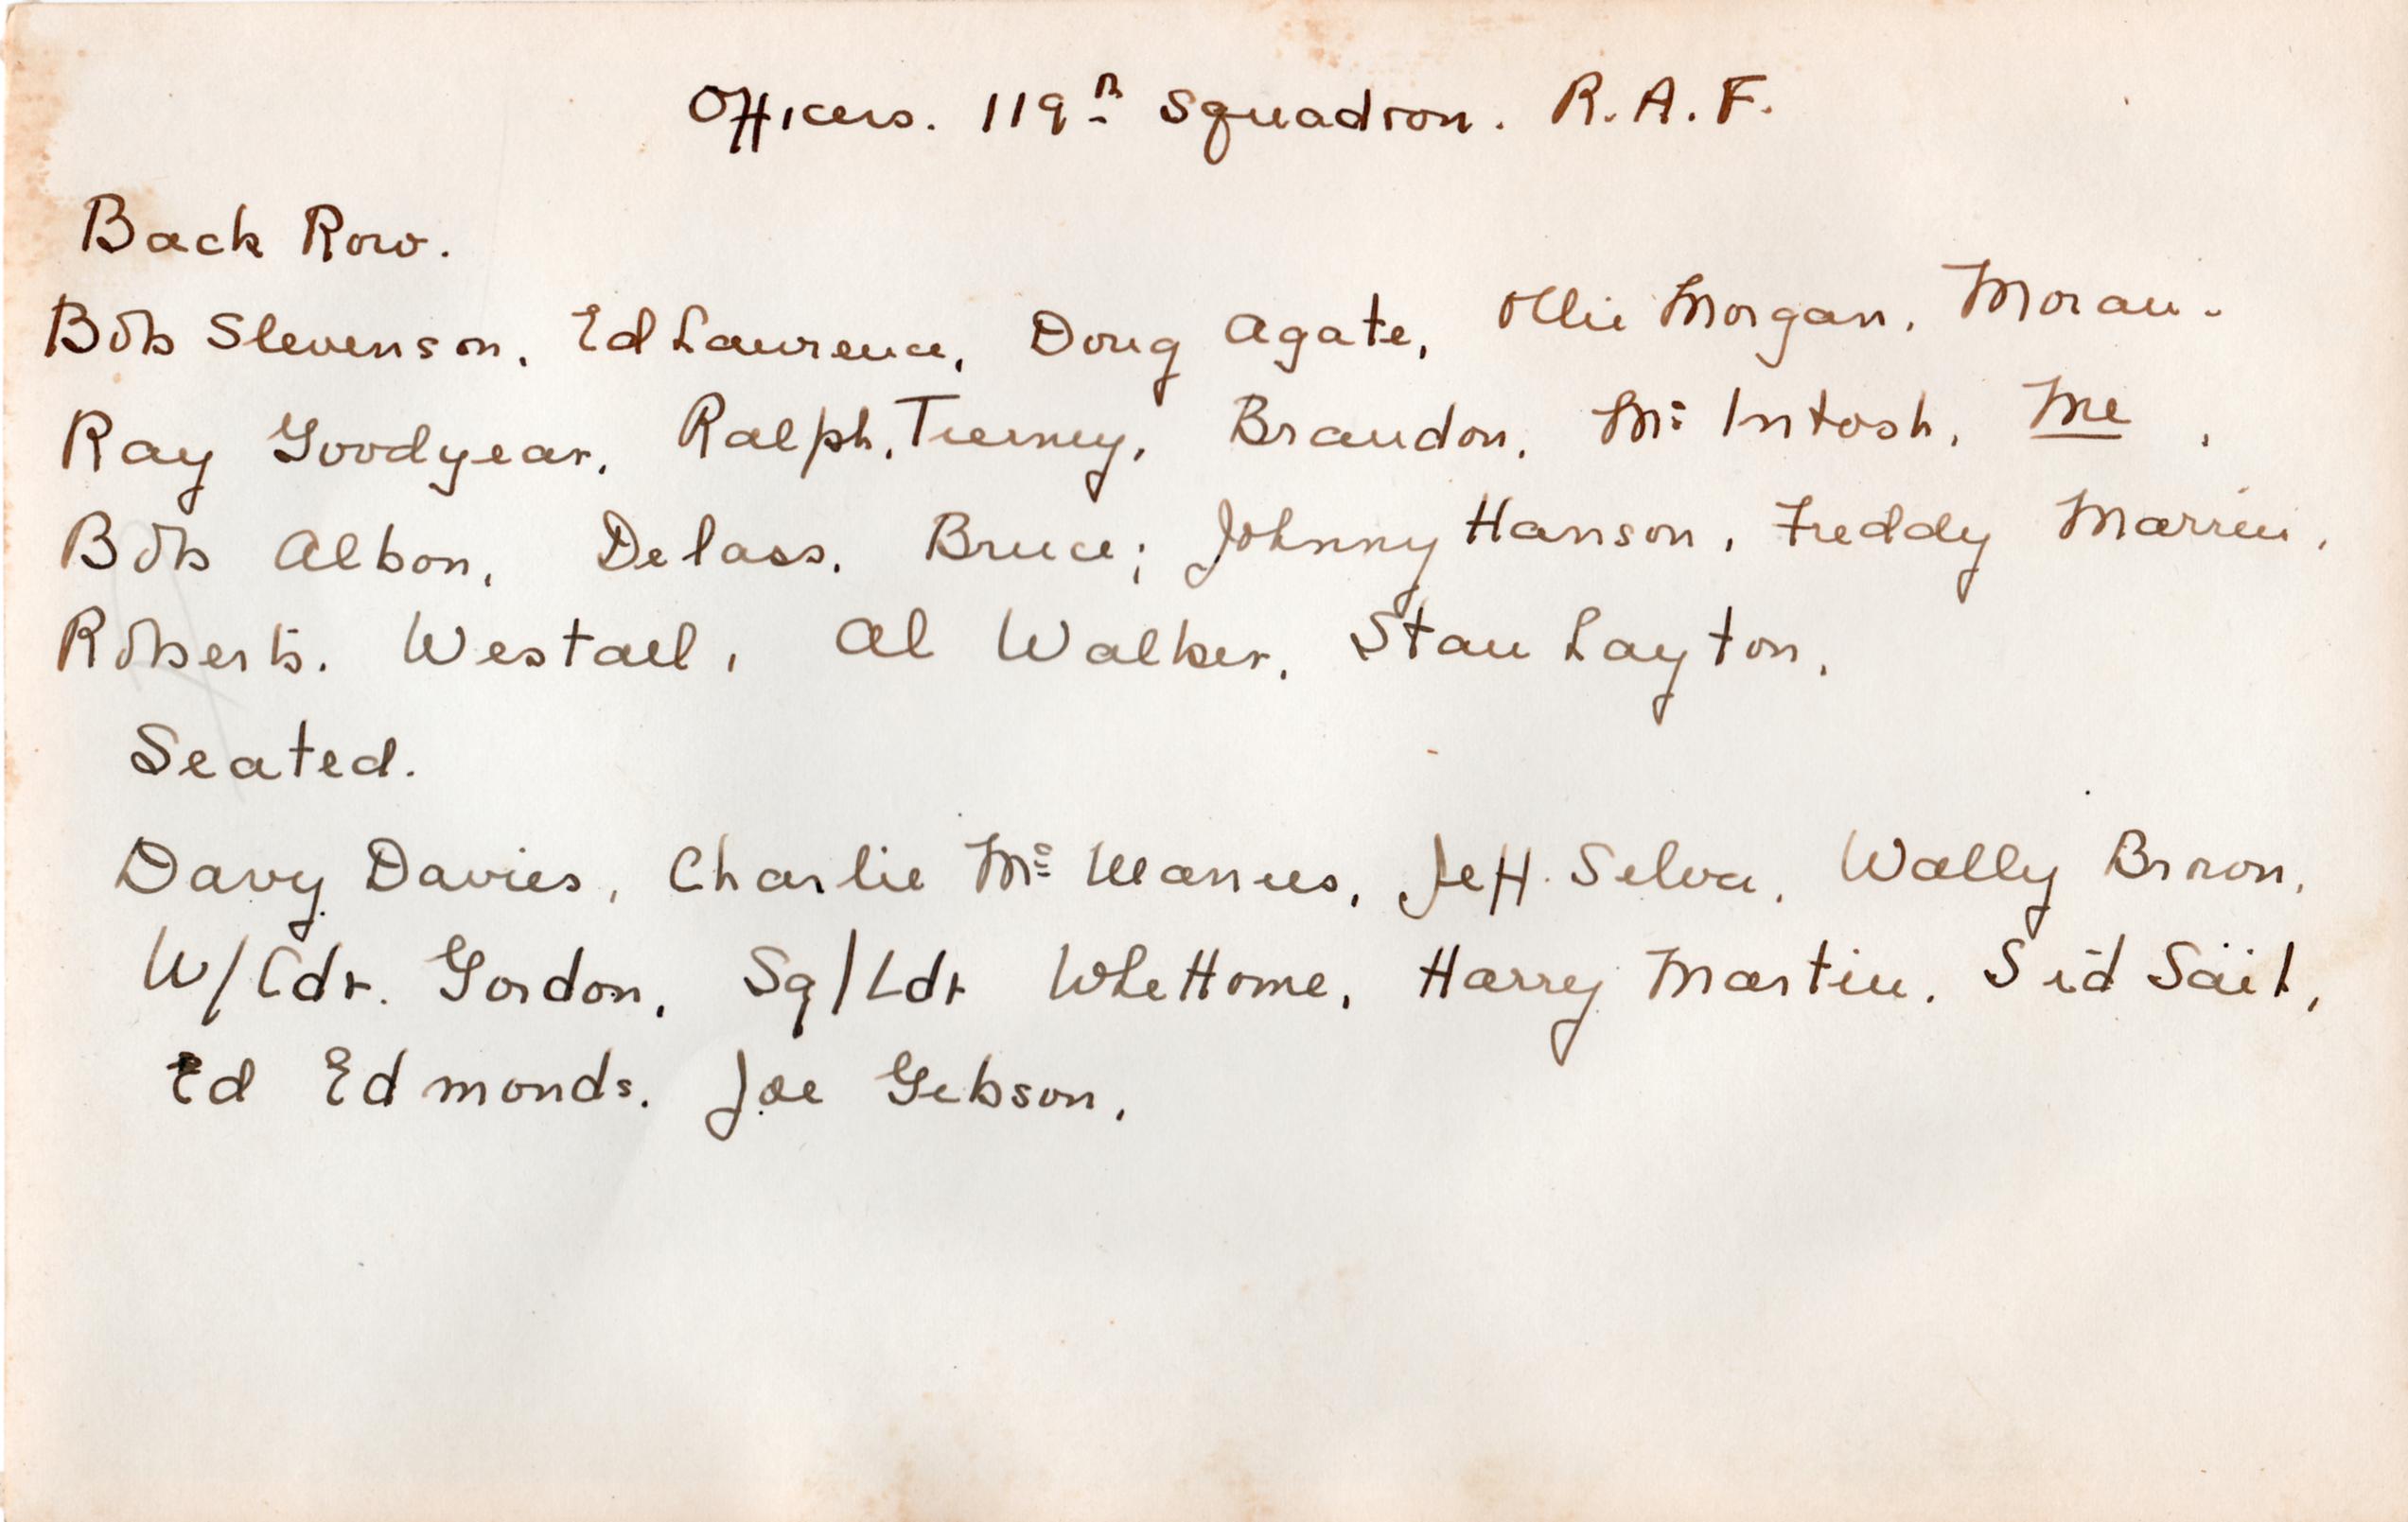 Officers. 119th Squadron. R.A.F.
Back Row.
Bob Stevenson, Ed Laurence, Doug Agate, Ollie Morgan, Moran.
Ray Goodyear, Ralph. Tierney, Brandon, Mc Intosh, Me,
Bob Albon, Delass, Bruce; Johnny Hanson, Freddy
Roberts. Westall, Al Walker, Stan Layton,
Seated.
Davy Davies, Charlie Mc Manus, Jeff Selva, Wally
W/Cdr. Gordon, Sq/Ldr Harry Martin, Sid
Ed Edmonds. Joe Gibson,